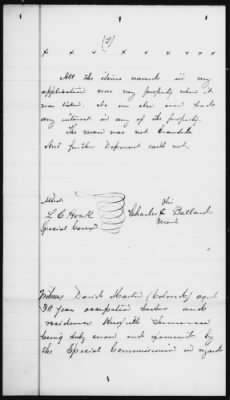 (3)
x x x x x x x x x
All the items named in my
application was my property when it
was taken. No one else ever had
any interest in any of the property.
The mare was not branded
And further Deponent saith not.
Attest
L. E. Houk
Special Comr
his
Charles C Ballard
Mark
Witness David Martin (Colored) aged
30 years occupation and
residence Knoxville Tennessee
being duly sworn and examined by
the Special Commissioner in regards